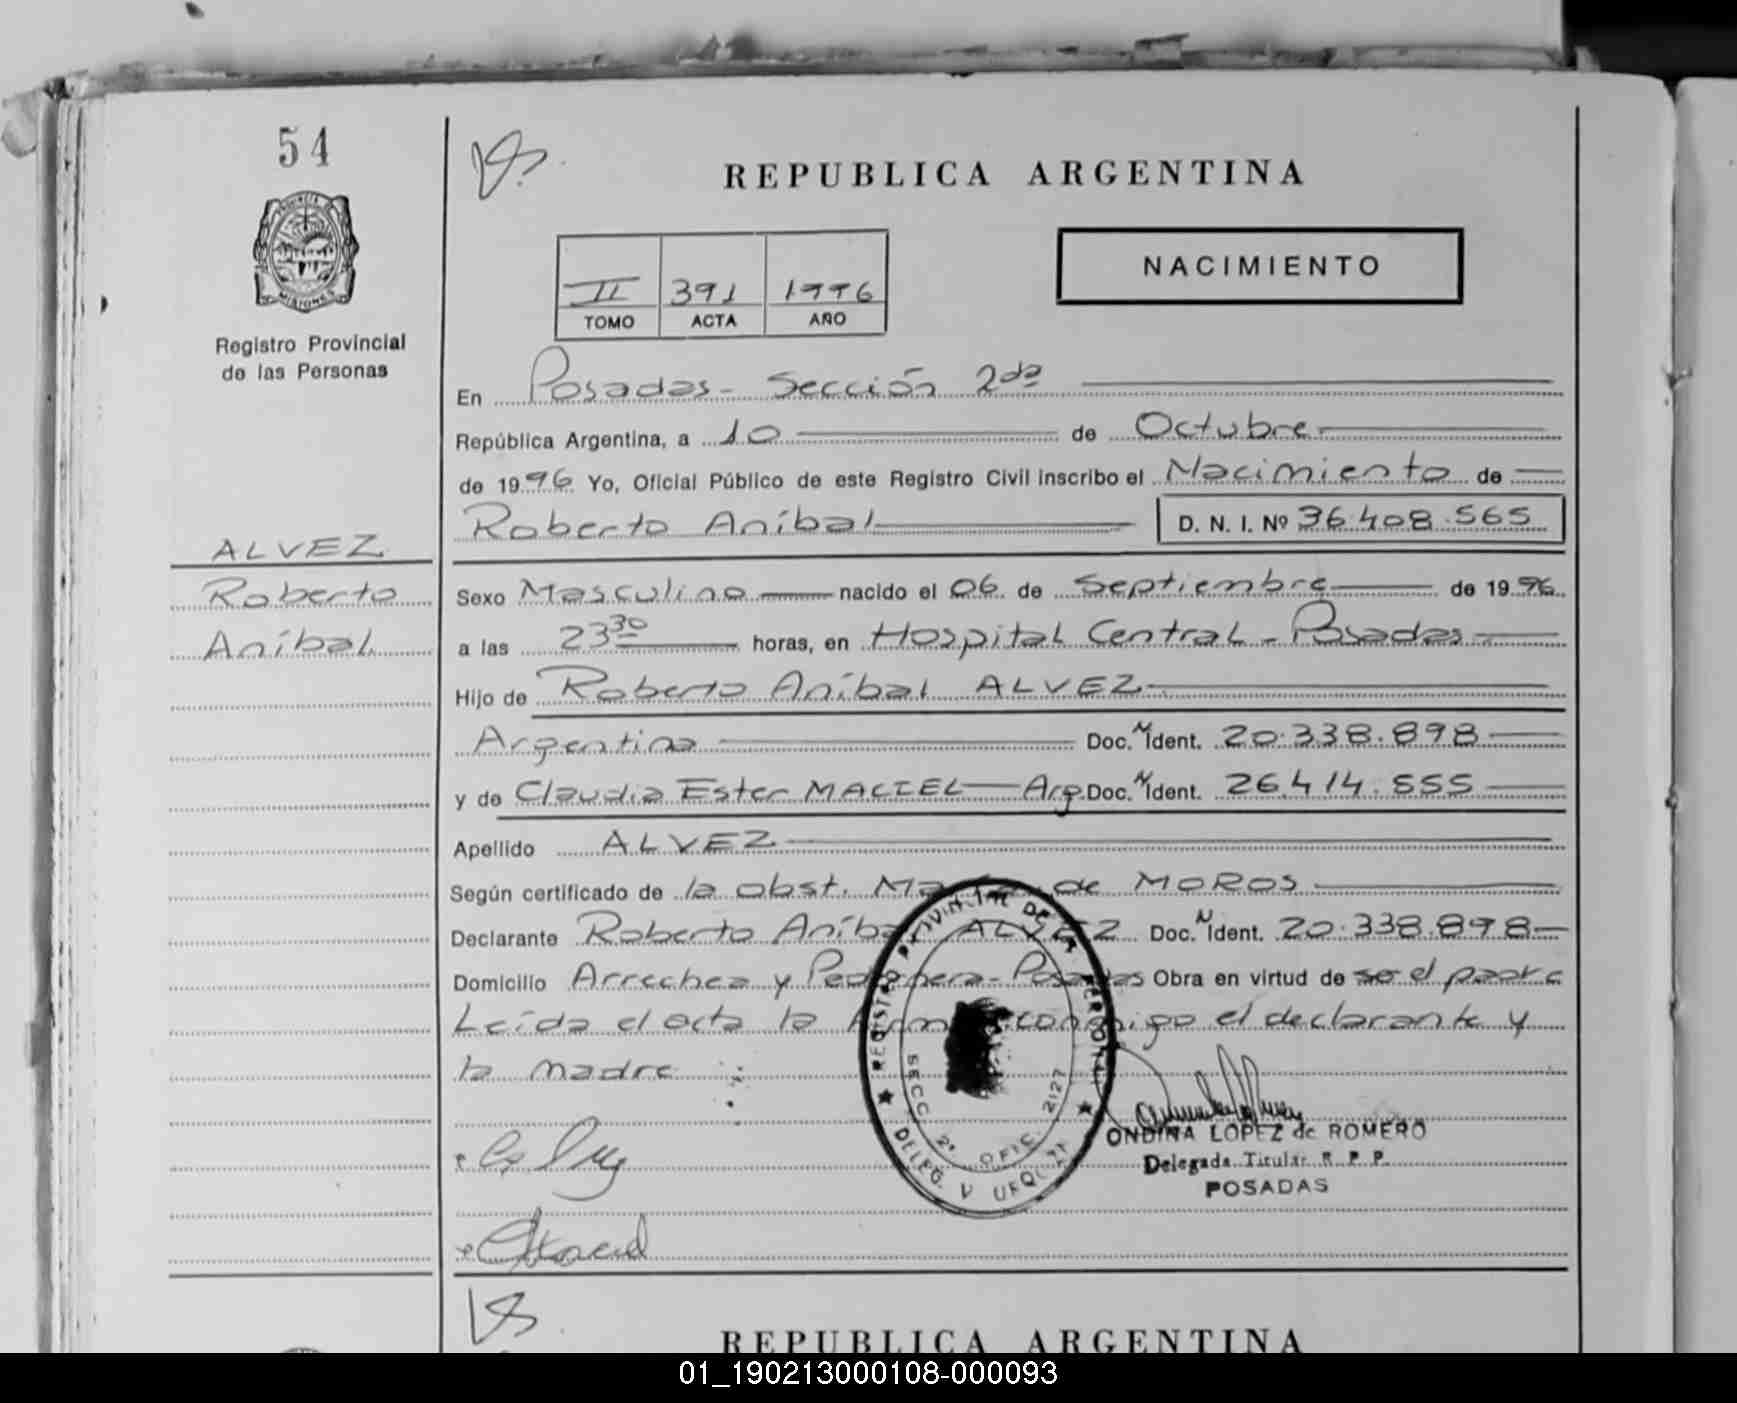 54
PROVINCIA DE
MISIONES
Registro Provincial
de las Personas
ALVEZ
Roberto
Aníbal
REPUBLICA ARGENTINA
NACIMIENTO
II 391 1996
TOMO ACTA AÑO
En Posadas - Sección 2da
República Argentina, a 10 de Octubre
de 1996 Yo, Oficial Público de este Registro Civil inscribo el Nacimiento de
Roberto Aníbal D. N. I. Nº 36.408.565
Sexo Masculino nacido el 06 de Septiembre de 1996
a las 23 30 horas, en Hospital Central - Posadas
Hijo de Roberto Aníbal ALVEZ
Argentina Doc. N Ident. 20.338.898
y de Claudia Ester MACIEL Arg. Doc. N Ident. 26.414.555
Apellido ALVEZ
Según certificado de la obst. de MOROS
Declarante Roberto Aníbal ALVEZ Doc. N Ident. 20.338.898
Domicilio Arrechea y - Posadas Obra en virtud de ser el padre
Leída el acta la firma conmigo el declarante y
la madre
REGISTRO PROVINCIAL DE LAS PERSONAS
SECC 2ª OFIC. 2127
DELEG. V
ONDINA LOPEZ de ROMERO
Delegada Titular R. P. P.
POSADAS
REPUBLICA ARGENTINA
01_190213000108-000093